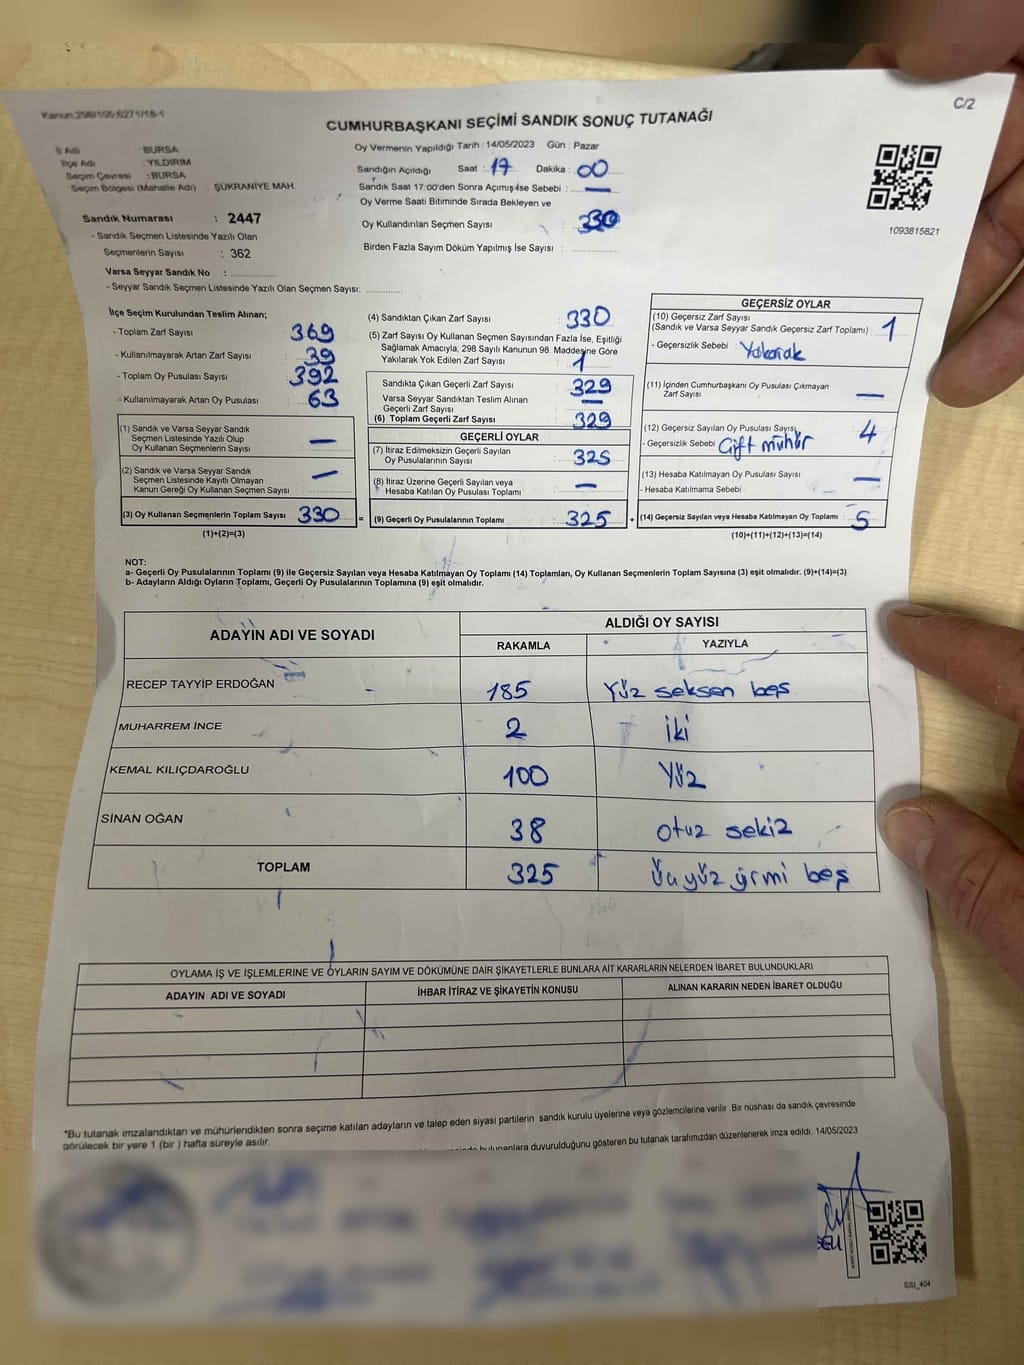 Kanun:298/105:6271/18-1
C/2
CUMHURBAŞKANI SEÇİMİ SANDIK SONUÇ TUTANAĞI
İl Adı : BURSA
İlçe Adı : YILDIRIM
Seçim Çevresi : BURSA
Seçim Bölgesi (Mahalle Adı) : ŞÜKRANİYE MAH.
Sandık Numarası : 2447
- Sandık Seçmen Listesinde Yazılı Olan
Seçmenlerin Sayısı : 362
Varsa Seyyar Sandık No :
- Seyyar Sandık Seçmen Listesinde Yazılı Olan Seçmen Sayısı:
Oy Vermenin Yapıldığı Tarih : 14/05/2023 Gün : Pazar
Sandığın Açıldığı Saat : 17 Dakika : 00
Sandık Saat 17:00'den Sonra Açılmış İse Sebebi : —
Oy Verme Saati Bitiminde Sırada Bekleyen ve
Oy Kullandırılan Seçmen Sayısı : 330
Birden Fazla Sayım Döküm Yapılmış İse Sayısı :
1093815821
İlçe Seçim Kurulundan Teslim Alınan;
- Toplam Zarf Sayısı 369
- Kullanılmayarak Artan Zarf Sayısı : 39
- Toplam Oy Pusulası Sayısı : 392
- Kullanılmayarak Artan Oy Pusulası : 63
(1) Sandık ve Varsa Seyyar Sandık
Seçmen Listesinde Yazılı Olup
Oy Kullanan Seçmenlerin Sayısı : —
(2) Sandık ve Varsa Seyyar Sandık
Seçmen Listesinde Kayıtlı Olmayan
Kanun Gereği Oy Kullanan Seçmen Sayısı : —
(3) Oy Kullanan Seçmenlerin Toplam Sayısı : 330
(1)+(2)=(3)
(4) Sandıktan Çıkan Zarf Sayısı : 330
(5) Zarf Sayısı Oy Kullanan Seçmen Sayısından Fazla İse, Eşitliği
Sağlamak Amacıyla; 298 Sayılı Kanunun 98. Maddesine Göre
Yakılarak Yok Edilen Zarf Sayısı : 1
Sandıkta Çıkan Geçerli Zarf Sayısı : 329
Varsa Seyyar Sandıktan Teslim Alınan
Geçerli Zarf Sayısı : —
(6) Toplam Geçerli Zarf Sayısı : 329
GEÇERLİ OYLAR
(7) İtiraz Edilmeksizin Geçerli Sayılan
Oy Pusulalarının Sayısı : 325
(8) İtiraz Üzerine Geçerli Sayılan veya
Hesaba Katılan Oy Pusulası Toplamı : —
= (9) Geçerli Oy Pusulalarının Toplamı : 325
GEÇERSİZ OYLAR
(10) Geçersiz Zarf Sayısı
(Sandık ve Varsa Seyyar Sandık Geçersiz Zarf Toplamı) : 1
- Geçersizlik Sebebi : Yakarak
(11) İçinden Cumhurbaşkanı Oy Pusulası Çıkmayan
Zarf Sayısı : —
(12) Geçersiz Sayılan Oy Pusulası Sayısı : 4
- Geçersizlik Sebebi : Çift mühür
(13) Hesaba Katılmayan Oy Pusulası Sayısı : —
- Hesaba Katılmama Sebebi :
+ (14) Geçersiz Sayılan veya Hesaba Katılmayan Oy Toplamı : 5
(10)+(11)+(12)+(13)=(14)
NOT:
a- Geçerli Oy Pusulalarının Toplamı (9) ile Geçersiz Sayılan veya Hesaba Katılmayan Oy Toplamı (14) Toplamları, Oy Kullanan Seçmenlerin Toplam Sayısına (3) eşit olmalıdır. (9)+(14)=(3)
b- Adayların Aldığı Oyların Toplamı, Geçerli Oy Pusulalarının Toplamına (9) eşit olmalıdır.
ADAYIN ADI VE SOYADI
ALDIĞI OY SAYISI
RAKAMLA YAZIYLA
RECEP TAYYİP ERDOĞAN 185 Yüz seksen beş
MUHARREM İNCE 2 iki
KEMAL KILIÇDAROĞLU 100 Yüz
SİNAN OĞAN 38 otuz sekiz
TOPLAM 325 Üçyüz yirmi beş
OYLAMA İŞ VE İŞLEMLERİNE VE OYLARIN SAYIM VE DÖKÜMÜNE DAİR ŞİKAYETLERLE BUNLARA AİT KARARLARIN NELERDEN İBARET BULUNDUKLARI
ADAYIN ADI VE SOYADI İHBAR İTİRAZ VE ŞİKAYETİN KONUSU ALINAN KARARIN NEDEN İBARET OLDUĞU
*Bu tutanak imzalandıktan ve mühürlendikten sonra seçime katılan adayların ve talep eden siyasi partilerin sandık kurulu üyelerine veya gözlemcilerine verilir. Bir nüshası da sandık çevresinde
görülecek bir yere 1 (bir ) hafta süreyle asılır.
bulunanlara duyurulduğunu gösteren bu tutanak tarafımızdan düzenlenerek imza edildi. 14/05/2023
SSI_404